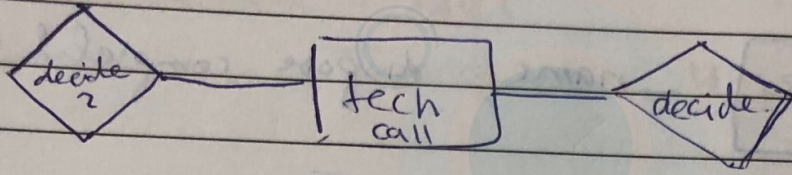 decide
?
tech
call
decide.